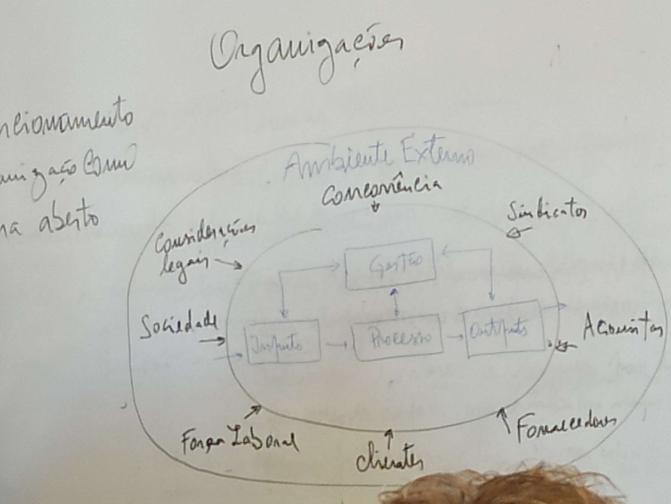 Organizações
ncionamento
anização como
ma aberto
Ambiente Externo
Concorrência
Sindicatos
Considerações
legais
Gestão
Sociedade
Inputs
Processo
Outputs
Acionistas
Força Laboral
Clientes
Fornecedores